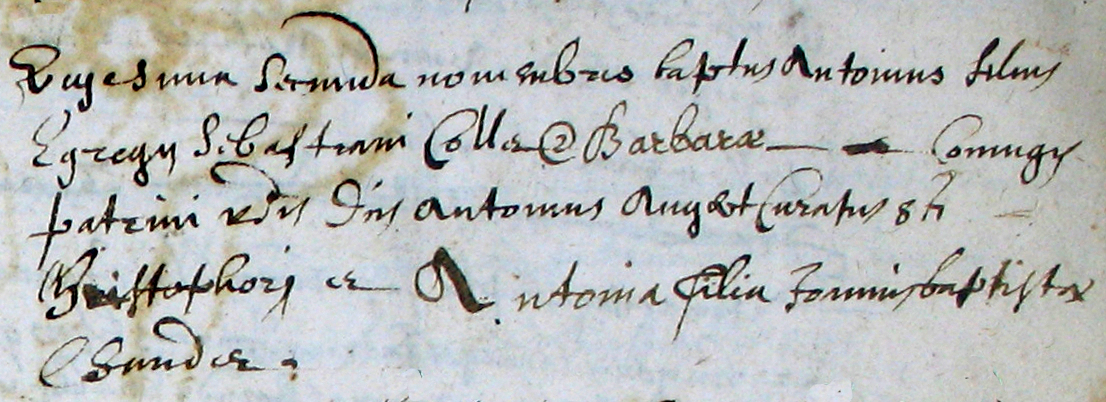 Vigesima secunda novembris baptus Antonius filius
Egregij Sebastiani Colle & Barbaræ Coniugū
patrini rdus Dnus Antonius Curatus sti
Christophorj et Antonia filia Joannisbaptistæ